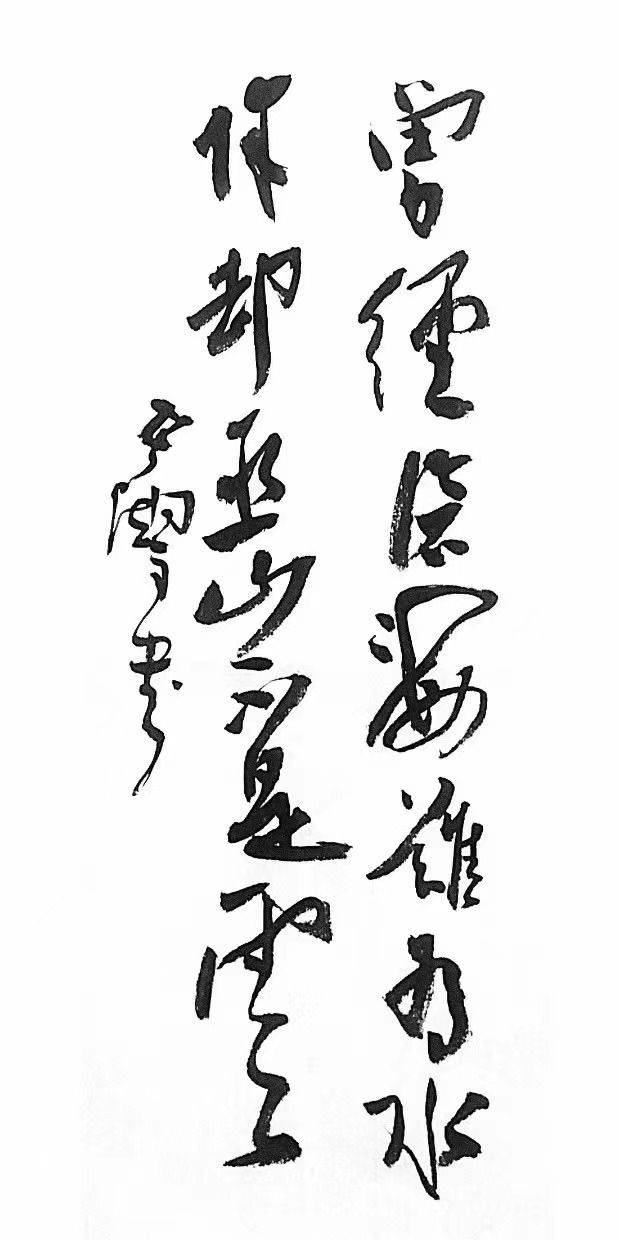 曾經滄海難為水
除却巫山不是雲
書